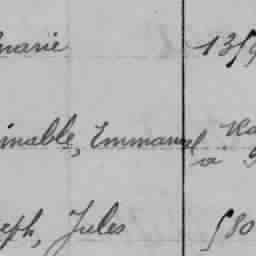 marie 135
imable, Emmanuel
a
seph, Jules 580